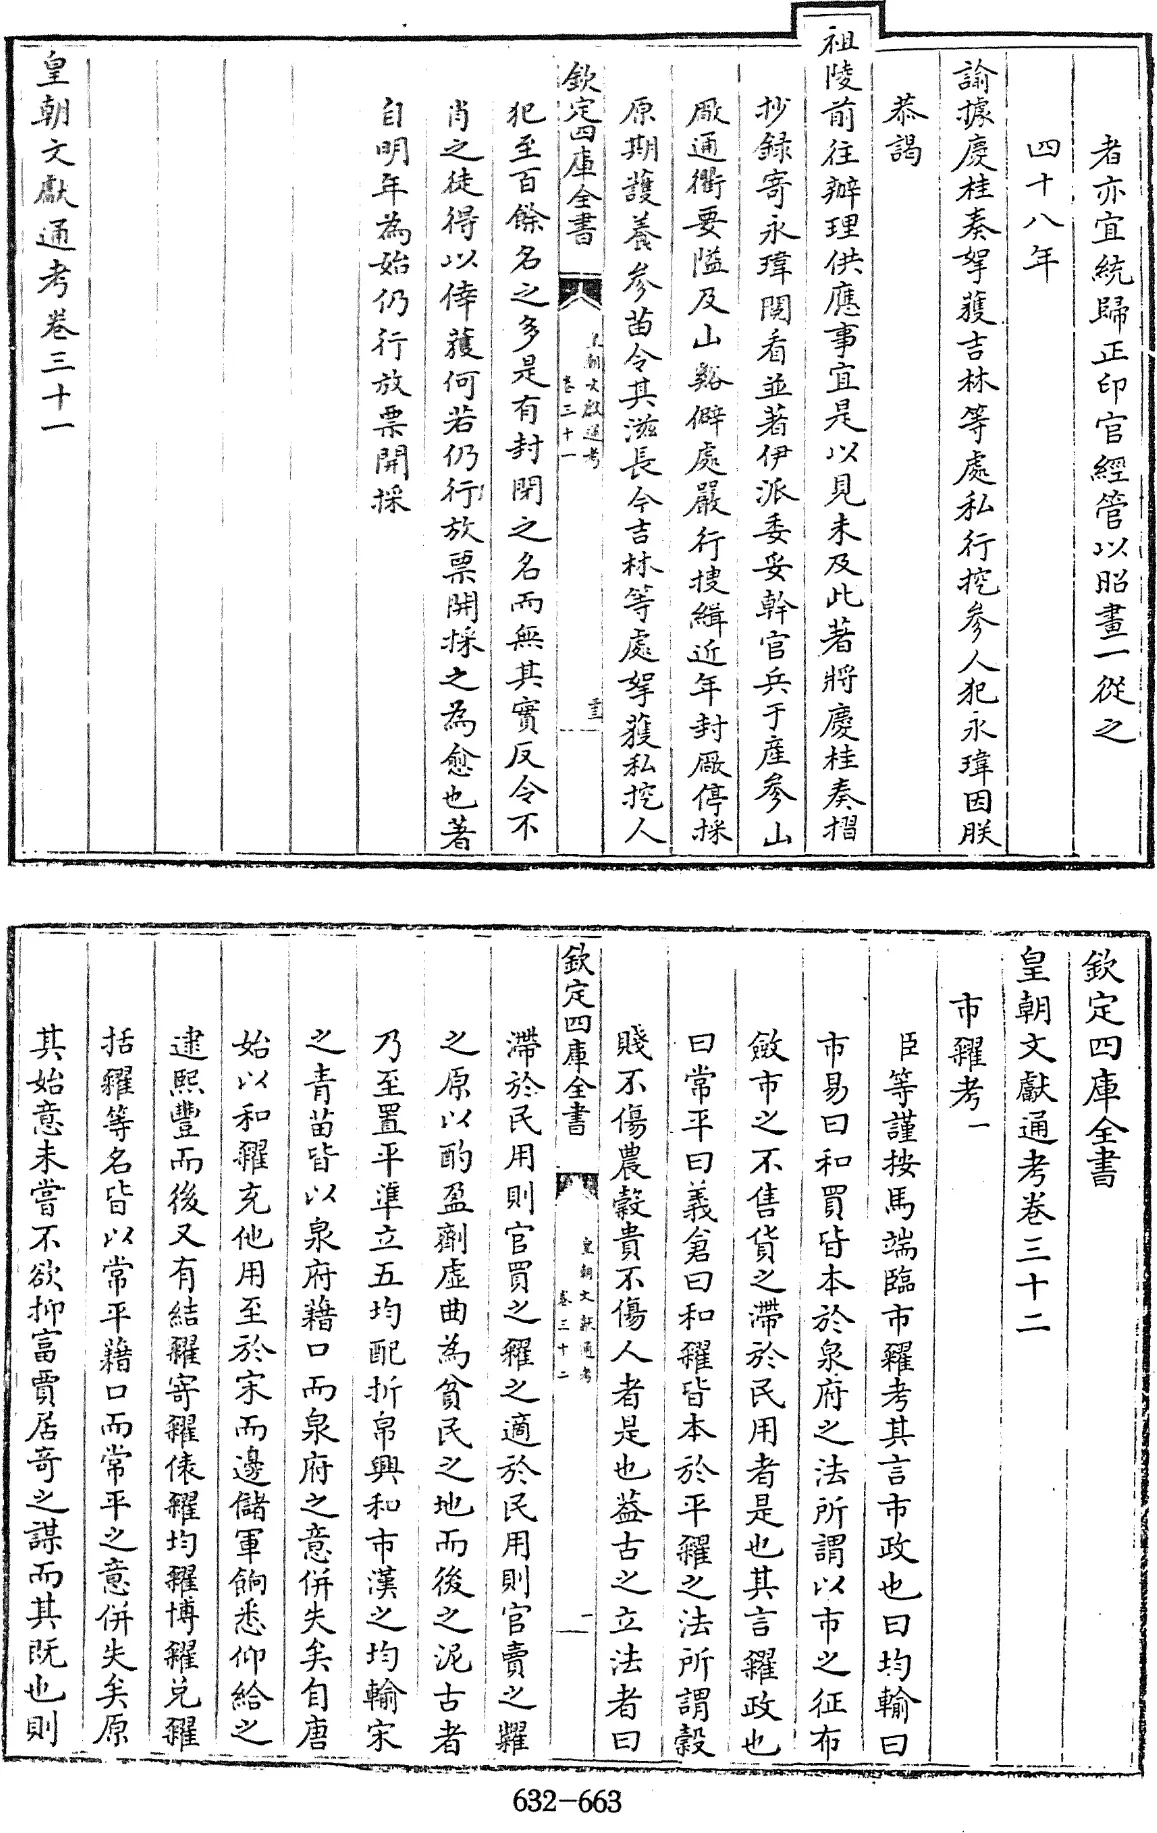 者亦宜統歸正印官經管以昭畫一從之
四十八年
諭據慶桂奏拏獲吉林等處私行挖參人犯永瑋因朕
恭謁
祖陵前往辦理供應事宜是以見未及此著將慶桂奏摺
抄録寄永瑋閱看並著伊派委妥幹官兵于産參山
廠通衢要隘及山谿僻處嚴行搜緝近年封廠停採
原期護養參苗令其滋長今吉林等處拏獲私挖人
欽定四庫全書
皇朝文獻通考
卷三十一
三
犯至百餘名之多是有封閉之名而無其實反令不
肖之徒得以倖獲何若仍行放票開採之為愈也著
自明年為始仍行放票開採
皇朝文獻通考卷三十一
欽定四庫全書
皇朝文獻通考卷三十二
市糴考一
臣等謹按馬端臨市糴考其言市政也曰均輸曰
市易曰和買皆本於泉府之法所謂以市之征布
斂市之不售貨之滯於民用者是也其言糴政也
曰常平曰義倉曰和糴皆本於平糴之法所謂穀
賤不傷農穀貴不傷人者是也葢古之立法者曰
欽定四庫全書
皇朝文獻通考
卷三十二
一
滯於民用則官買之糴之適於民用則官賣之糶
之原以酌盈劑虛曲為貧民之地而後之泥古者
乃至置平準立五均配折帛興和市漢之均輸宋
之青苗皆以泉府藉口而泉府之意併失矣自唐
始以和糴充他用至於宋而邊儲軍餉悉仰給之
逮熙豐而後又有結糴寄糴俵糴均糴博糴兌糴
括糴等名皆以常平藉口而常平之意併失矣原
其始意未嘗不欲抑富賈居奇之謀而其既也則
632-663